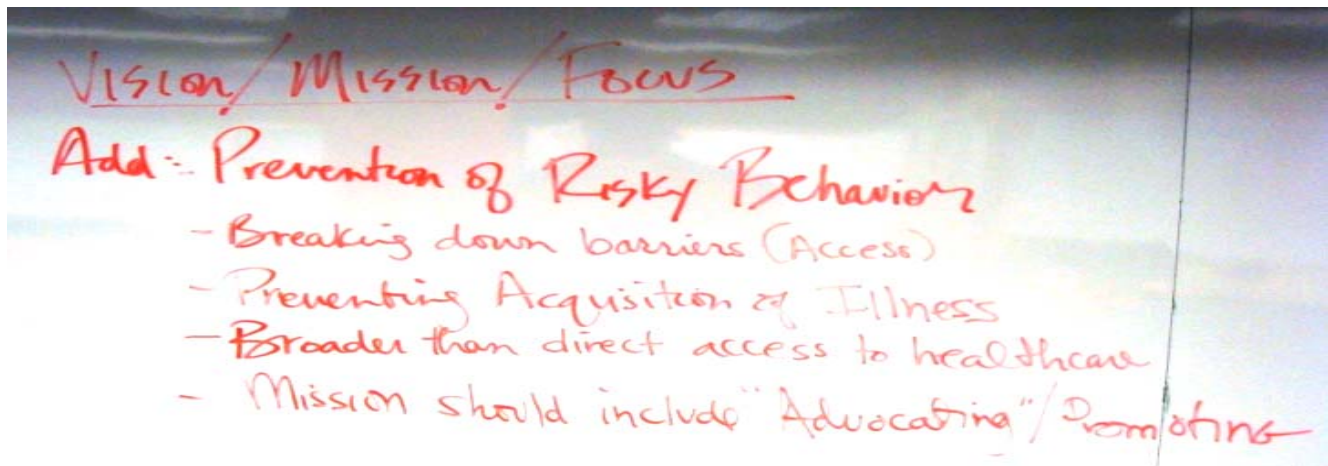 Vision/Mission/Focus
Add: Prevention of Risky Behavior
- Breaking down barriers (Access)
- Preventing Acquisition of Illness
- Broader than direct access to healthcare
- Mission should include "Advocating"/Promoting